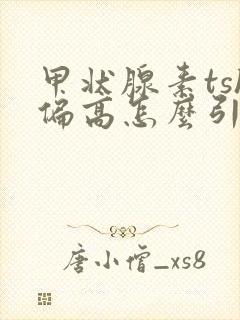 甲状腺素ts
偏高怎麼引
唐小僧_xs8